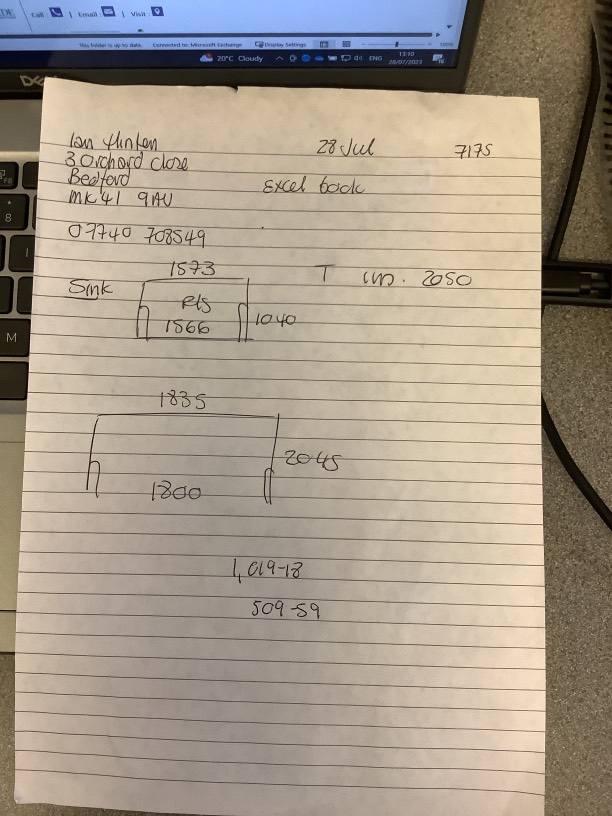 Call: | Email: | Visit:
This folder is up to date. Connected to: Microsoft Exchange Display Settings 100%
20°C Cloudy ENG 13:10 28/07/2023
Dell
28 Jul 7175
3 Orchard Close
Bedford
Excel book
MK41 9AU
07740 708549
1573
T im. 2050
Sink
Rls
1566
1040
1835
2045
1800
1,019-18
509-59
8
I
M